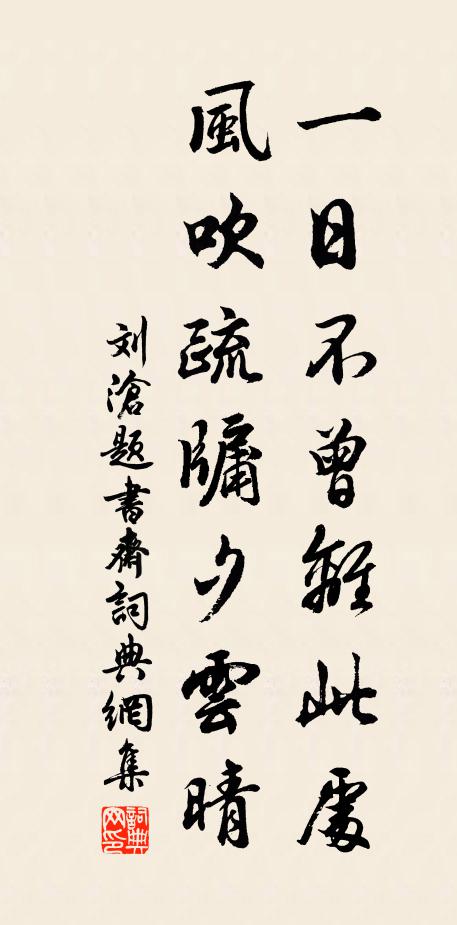 一日不曾離此處
風吹疏牖夕雲晴
刘滄題書齋詞典網集
詞典网印